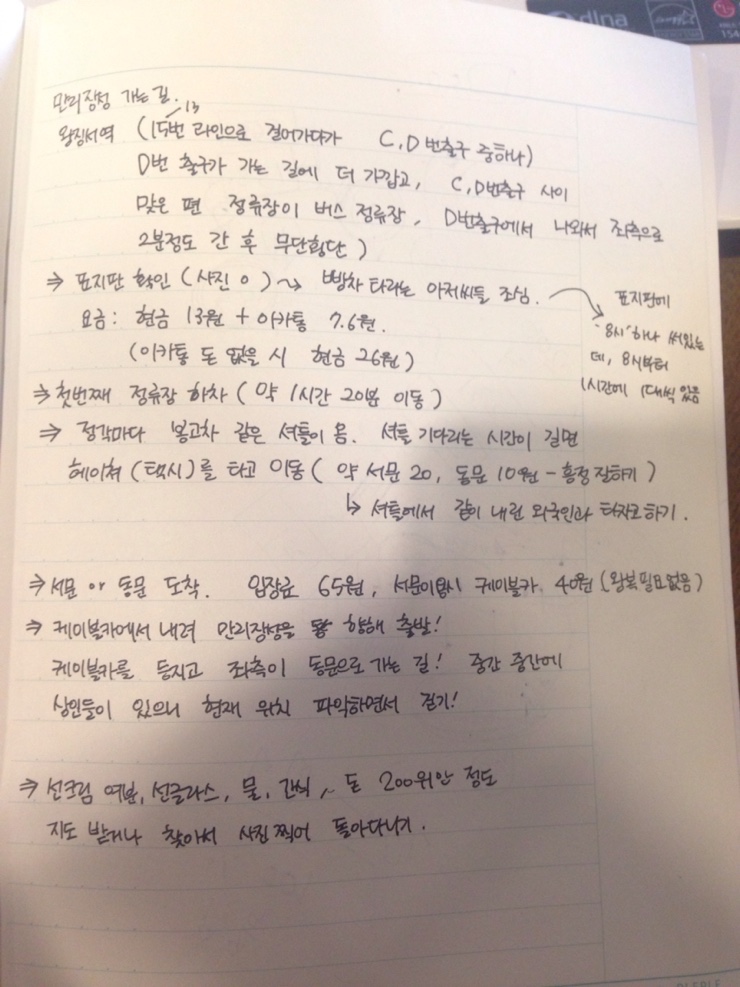 dlna
만리장성 가는 길.
13
왕징서역 (15번 라인으로 걸어가다가 C, D 번출구 중하나)
D번 출구가 가는 길에 더 가깝고, C, D번출구 사이
맞은 편 정류장이 버스 정류장, D번출구에서 나와서 좌측으로
2분정도 간 후 무단횡단)
⇒ 표지판 확인 (사진 O) ~> 빵차 타라는 아저씨들 조심.
표지판에
"8시"하나 써있는
데, 8시부터
1시간에 1대씩 있음
요금: 현금 13원 + 이카통 7.6원.
(이카통 돈 없을 시 현금 26원)
⇒ 첫번째 정류장 하차 (약 1시간 20분 이동)
⇒ 정각마다 봉고차 같은 셔틀이 옴. 셔틀 기다리는 시간이 길면
헤이처 (택시)를 타고 이동 (약 서문 20, 동문 10원 - 흥정 잘하기)
↳ 셔틀에서 같이 내린 외국인과 타자고하기.
⇒ 서문 or 동문 도착. 입장료 65원, 서문이용시 케이블카 40원 (왕복필요없음)
⇒ 케이블카에서 내려 만리장성을 향해 출발!
케이블카를 등지고 좌측이 동문으로 가는 길! 중간 중간에
상인들이 있으니 현재 위치 파악하면서 걷기!
⇒ 선크림 여분, 선글라스, 물, 간식, 돈 200위안 정도
지도 받거나 찾아서 사진 찍어 돌아다니기.